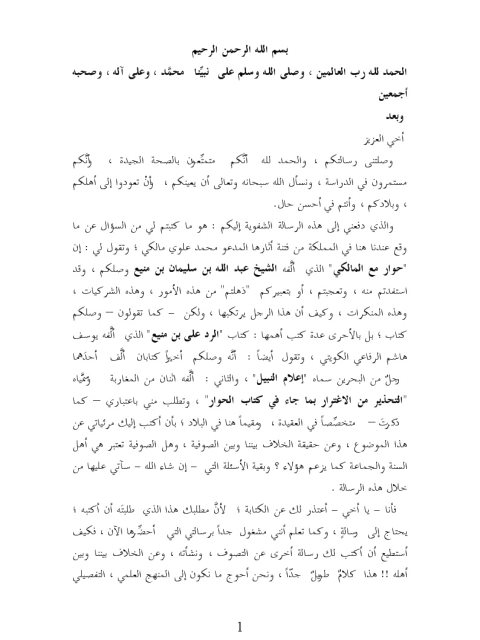 بسم الله الرحمن الرحيم
الحمد لله رب العالمين ، وصلى الله وسلم على نبيِّنا محمَّد ، وعلى آله ، وصحبه
أجمعين
وبعد
أخي العزيز
وصلتني رسالتكم ، والحمد لله أنَّكم متمتِّعون بالصحة الجيدة ، وأنَّكم
مستمرون في الدراسة ، ونسأل الله سبحانه وتعالى أن يعينكم ، وأنْ تعودوا إلى أهلكم
، وبلادكم ، وأنتم في أحسن حال.
والذي دفعني إلى هذه الرسالة الشفوية إليكم : هو ما كتبتم لي من السؤال عن ما
وقع عندنا هنا في المملكة من فتنة أثارها المدعو محمد علوي مالكي ؛ وتقول لي : إن
"حوار مع المالكي" الذي ألَّفه الشيخ عبد الله بن سليمان بن منيع وصلكم ، وقد
استفدتم منه ، وتعجبتم ، أو بتعبيركم "ذهلتم" من هذه الأمور ، وهذه الشركيات ،
وهذه المنكرات ، وكيف أن هذا الرجل يرتكبها ، ولكن – كما تقولون – وصلكم
كتاب ؛ بل بالأحرى عدة كتب أهمها : كتاب "الرد على بن منيع" الذي ألَّفه يوسف
هاشم الرفاعي الكويتي ، وتقول أيضاً : أنَّه وصلكم أخيراً كتابان ألَّف أحدَهما
رجلٌ من البحرين سماه "إعلام النبيل" ، والثاني : ألَّفه اثنان من المغاربة وسمَّياه
"التحذير من الاغترار بما جاء في كتاب الحوار" ، وتطلب مني باعتباري – كما
ذكرتَ – متخصِّصاً في العقيدة ، ومقيماً هنا في البلاد ؛ بأن أكتب إليك مرئياتي عن
هذا الموضوع ، وعن حقيقة الخلاف بيننا وبين الصوفية ، وهل الصوفية تعتبر هي أهل
السنة والجماعة كما يزعم هؤلاء ؟ وبقية الأسئلة التي – إن شاء الله – سآتي عليها من
خلال هذه الرسالة .
فأنا – يا أخي – أعتذر لك عن الكتابة ؛ لأنَّ مطلبك هذا الذي طلبتَه أن أكتبه ؛
يحتاج إلى رسالةٍ ، وكما تعلم أنني مشغول جداً برسالتي التي أحضِّرها الآن ، فكيف
أستطيع أن أكتب لك رسالة أخرى عن التصوف ، ونشأته ، وعن الخلاف بيننا وبين
أهله !! هذا كلامٌ طويلٌ جدّاً ، ونحن أحوج ما نكون إلى المنهج العلمي ، التفصيلي
1